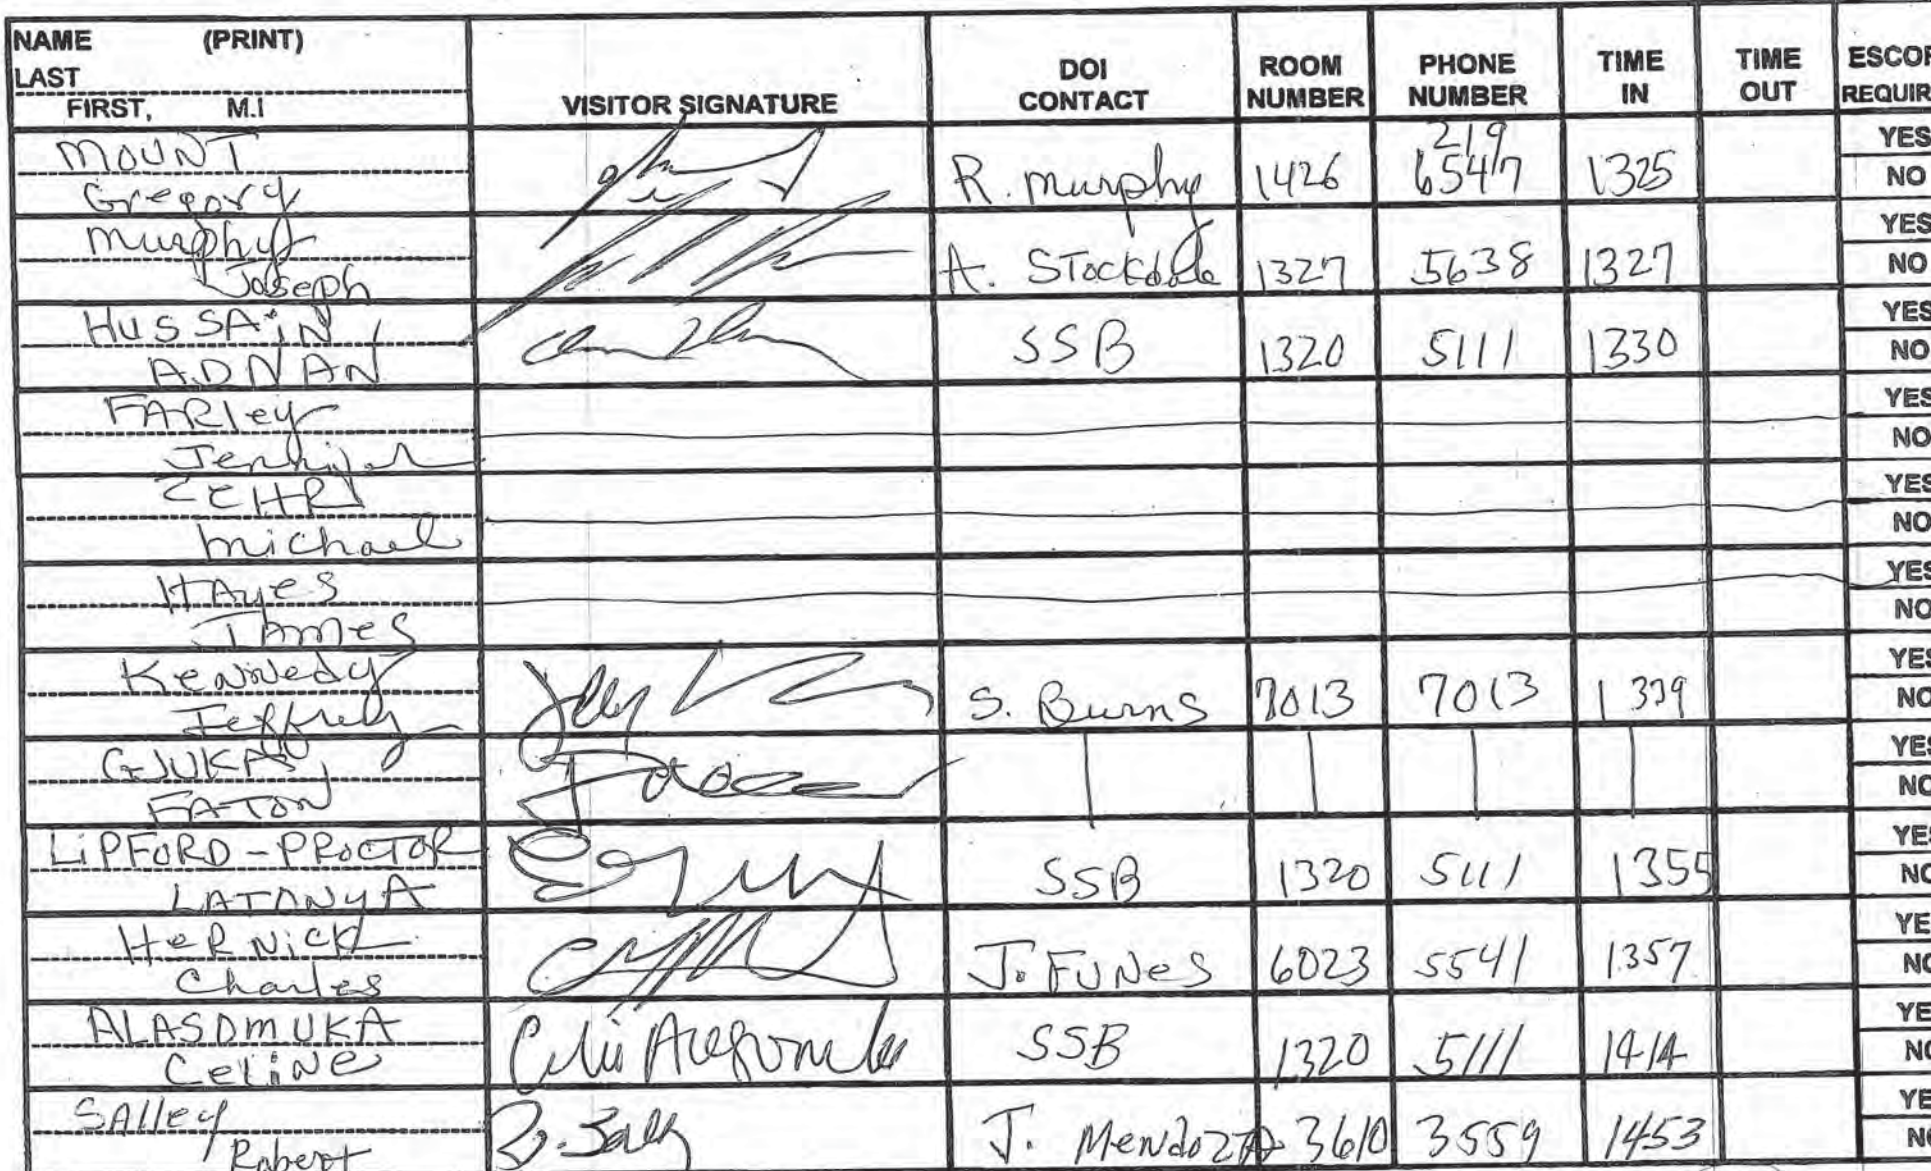 NAME (PRINT)
LAST
FIRST, M.I
VISITOR SIGNATURE
DOI
CONTACT
ROOM
NUMBER
PHONE
NUMBER
TIME
IN
TIME
OUT
MOUNT
Gregory
R. murphy 1426 219 6547 1325
YES
NO
murphy
Joseph
A. STockdale 1327 5638 1327
YES
NO
HUSSAiN
ADNAN
SSB 1320 5111 1330
YES
NO
FARley
Jennifer
YES
NO
michael
YES
NO
HAyes
JAmes
YES
NO
Kennedy
Jeffrey
S. Burns 7013 7013 1339
YES
NO
GJUKAJ
FATON
YES
NO
LiPFORD-PROCTOR
LATONYA
SSB 1320 5111 1355
YES
NO
HeRNick
Charles
J. FUNes 6023 5541 1357
ALASOMUKA
CeliNe
SSB 1320 5111 1414
SAlley
Robert
J. MendozA 3610 3559 1453